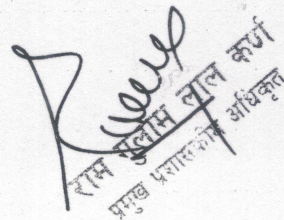 राम गुलाम लाल कर्ण
प्रमुख प्रशासकीय अधिकृत